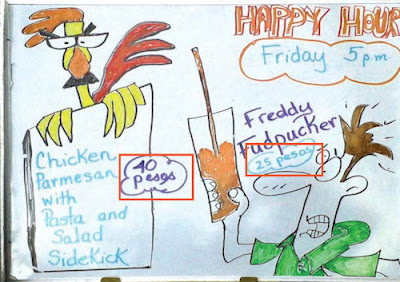 HAPPY HOUR
Friday 5 p.m.
Freddy
Fudpucker
25 pesos
Chicken
Parmesan
with
Pasta and
Salad
SideKick
40
pesos